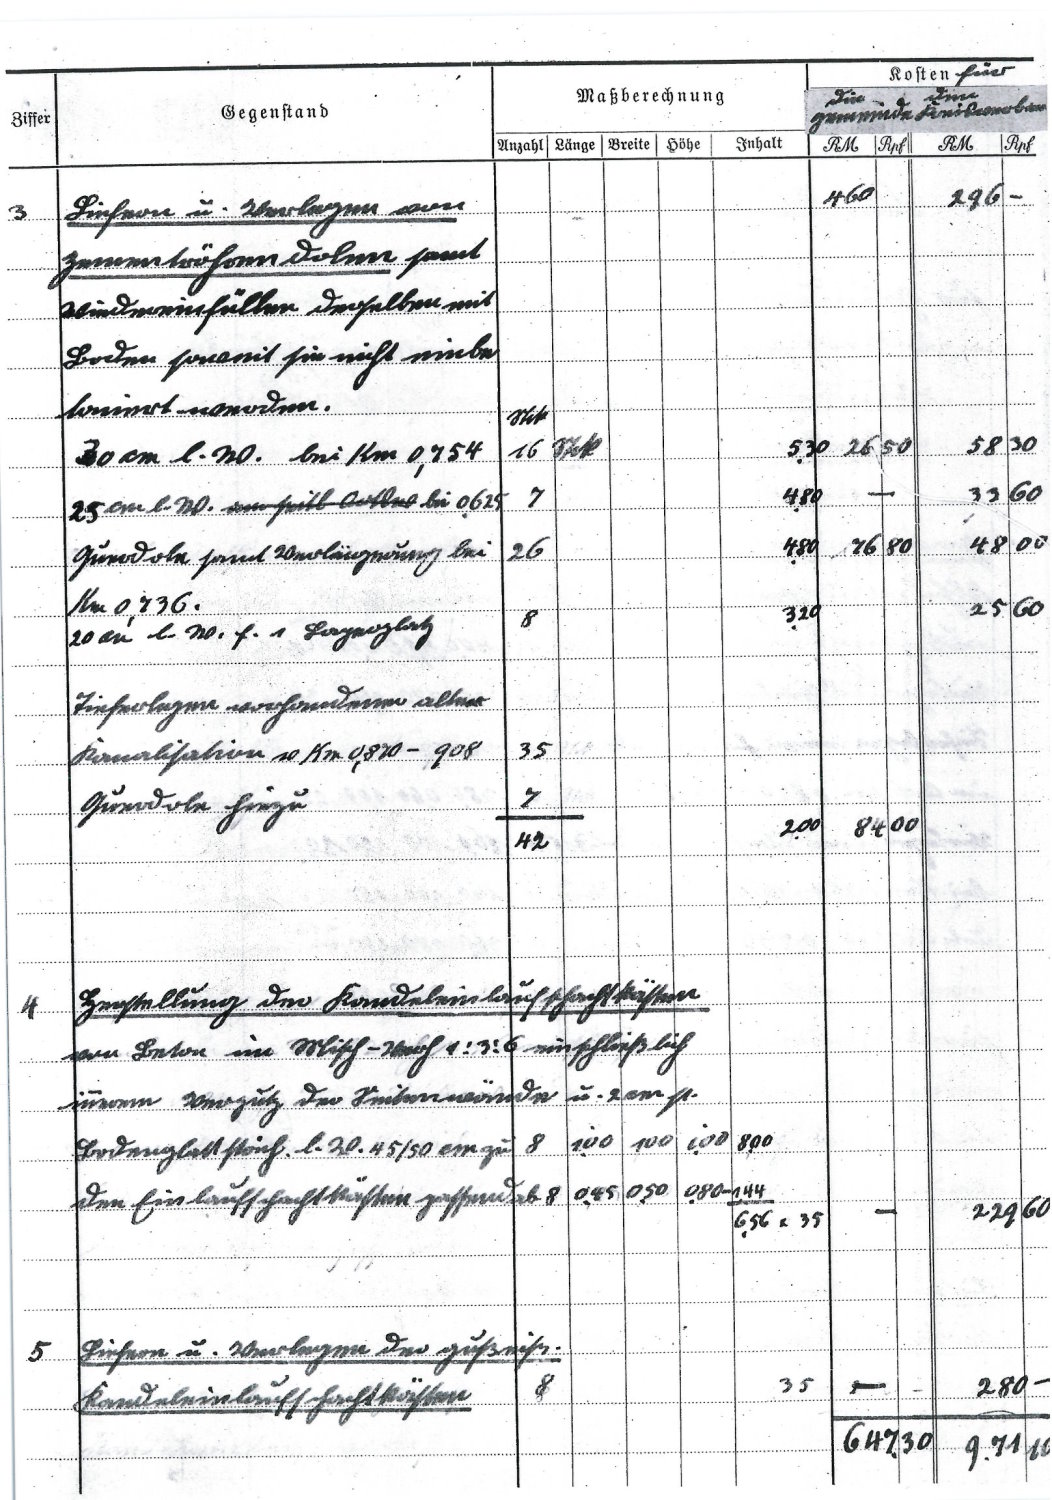 Ziffer Gegenstand Maßberechnung Kosten für
die Gemeinde den Kreisverband
Anzahl Länge Breite Höhe Inhalt RM Rpf RM Rpf
460 296 –
3 Liefern u. Verlegen von
Zementröhren Dolen samt
Wiedereinfüllen derselben mit
Boden soweit sie nicht einbe
toniert werden.
Stk
30 cm l. W. bei Km 0,754 16 Stk 5,30 26 50 58 30
25 cm l. W. bei 0,625 7 4,80 — 33 60
Querdole samt Verlängerung bei 26 4,80 76 80 48 00
Km 0,736.
20 cm l. W. f. 1 Lagerplatz 8 3,20 25 60
Tieferlegen vorhandener alter
Kanalisation v Km 0,870 – 908 35
Querdole hiezu 7
42 2,00 84 00
4 Herstellung der Kandeleinlaufschachtkästen
von Beton im Misch-Verh 1:3:6 einschließlich
innerem Verputz der Seitenwände u. 2 cm st.
Bodenglattstrich. l. W. 45/50 cm zu 8 1,00 1,00 1,00 8,00
den Einlaufschachtkästen passend ab 8 0,45 0,50 0,80 – 1,44
6,56 x 35 — 229 60
5 Liefern u. Verlegen der gußeis.
Kandeleinlaufschachtkästen 8 35 — 280 –
647.30 9.71 10